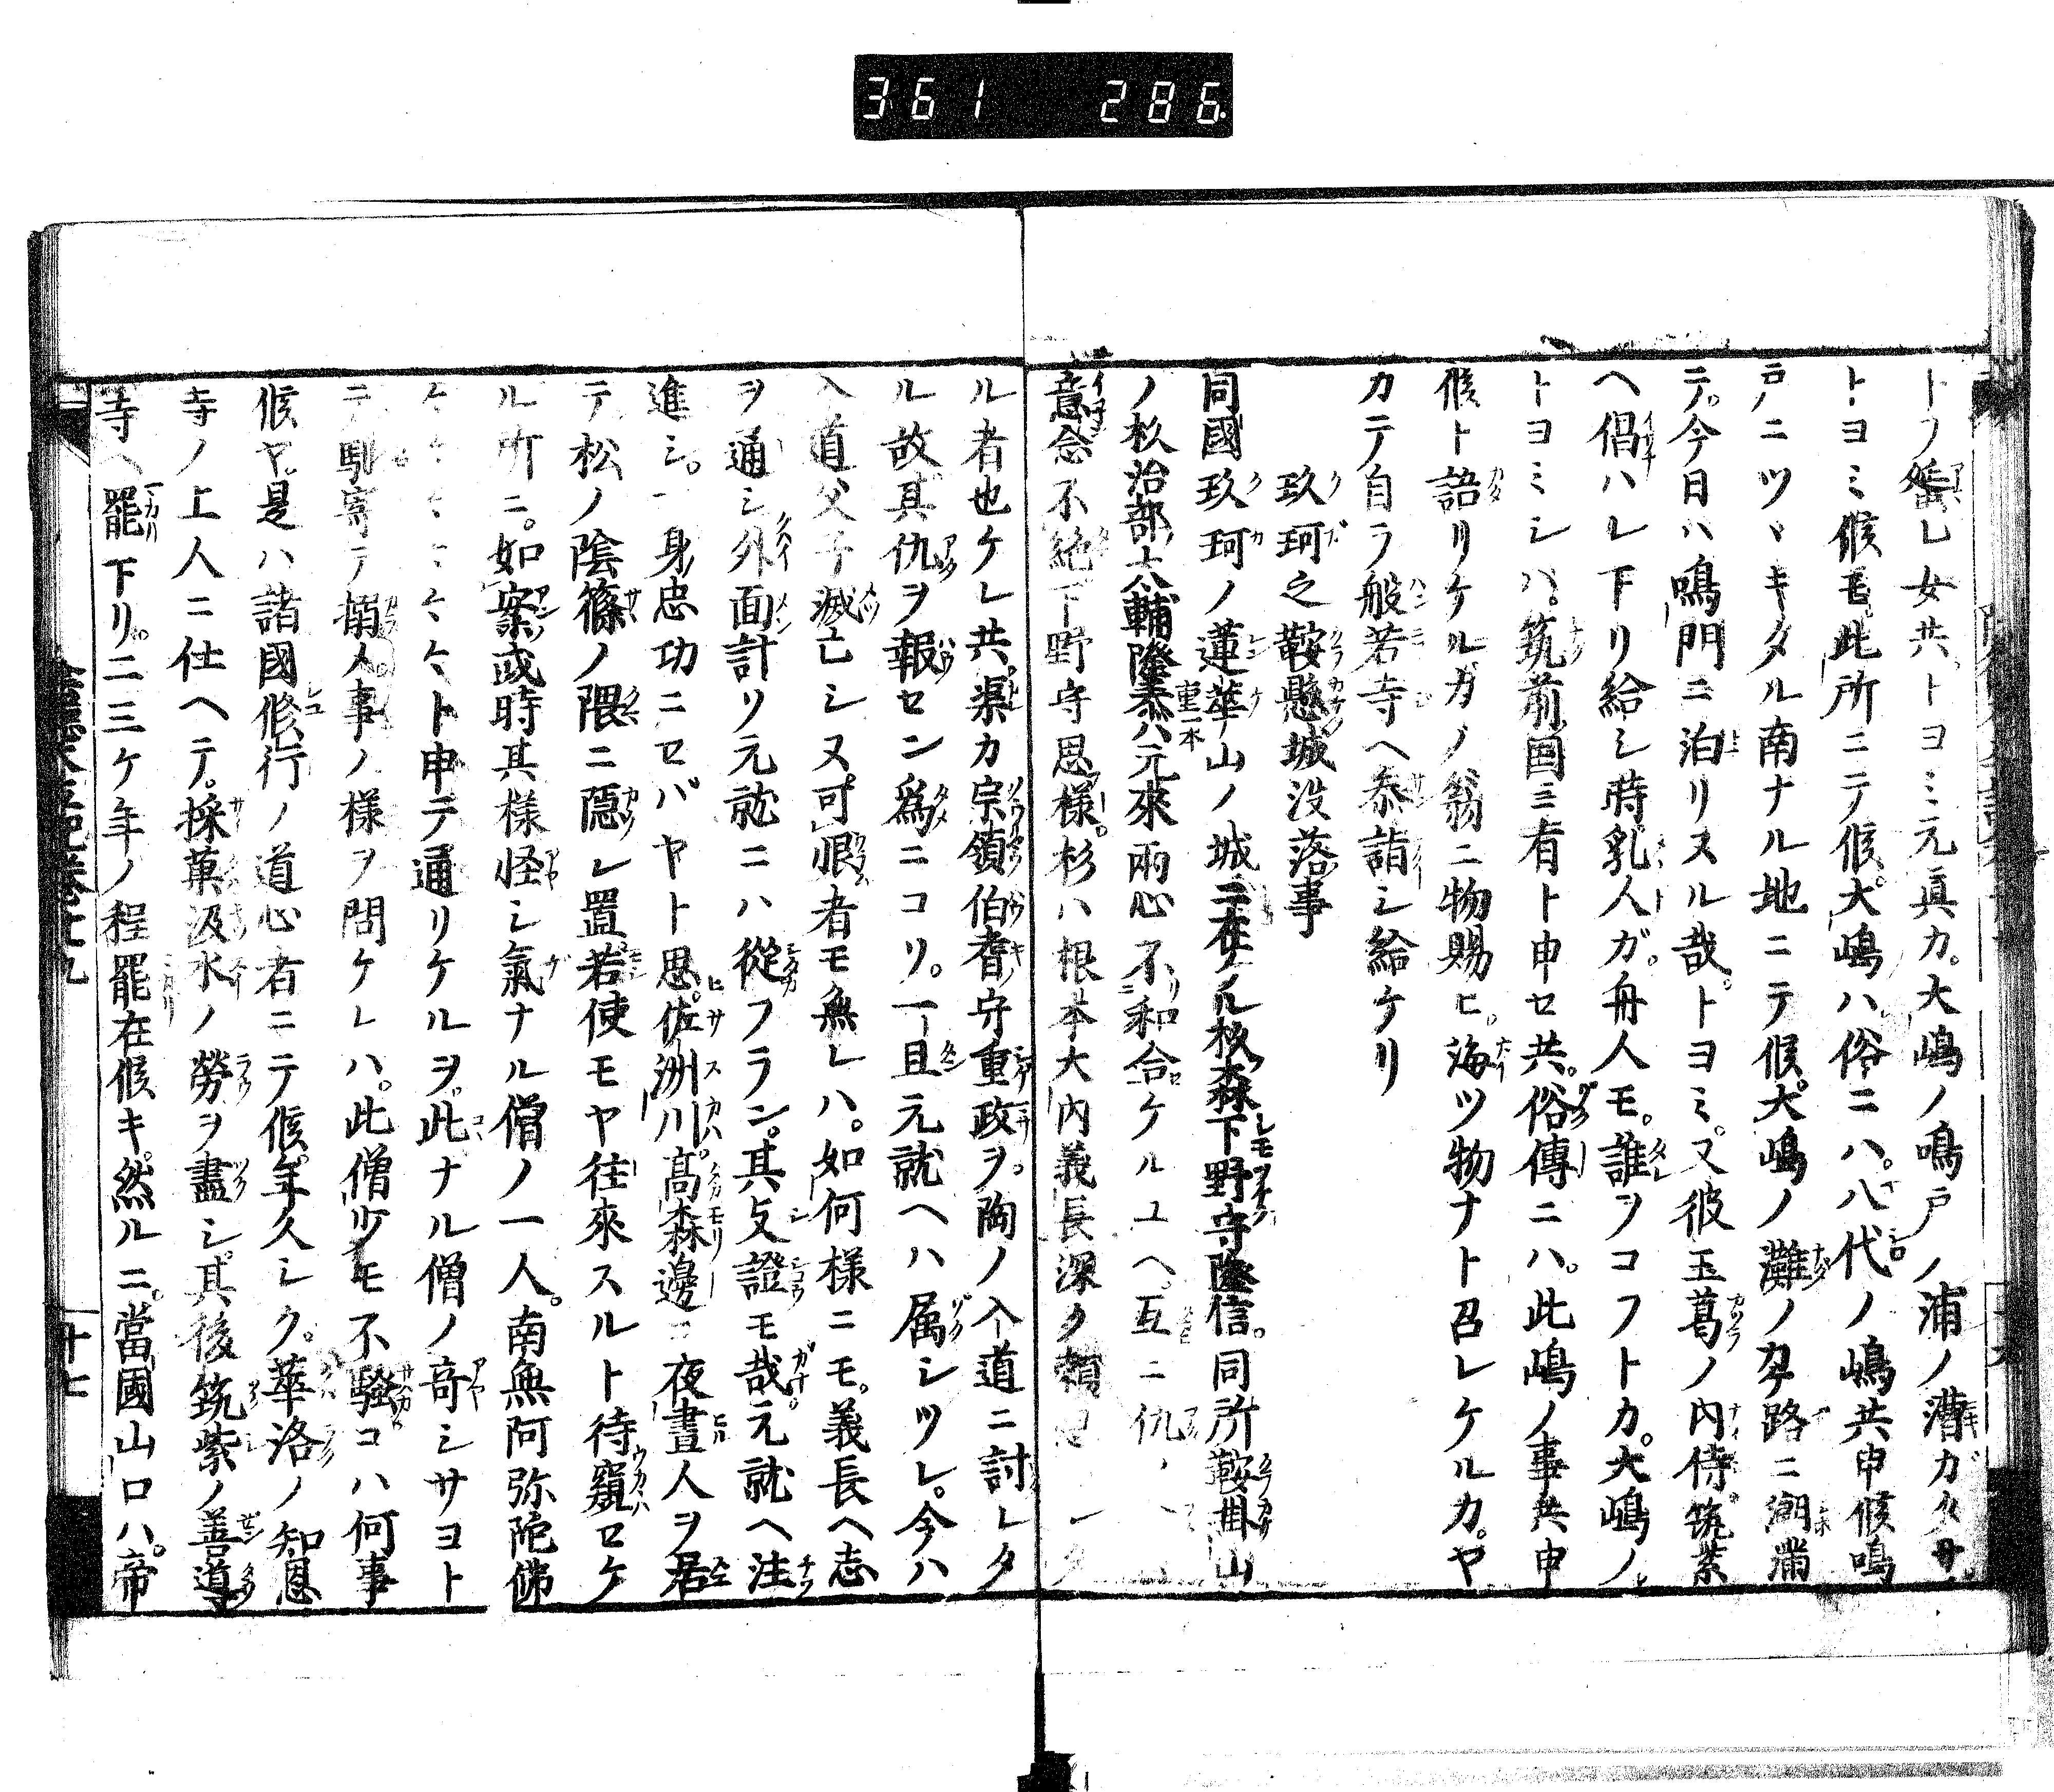 361 286
トノ蜑レ女共トヨミ元真カ。大嶋ノ鳴戸ノ浦ノ漕ガタサ
トヨミ候モ此所ニテ候。大嶋ハ俗ニハ。八代ノ嶋共申候鳴
戸ニツヽキタル南ナル地ニテ候。大嶋ノ灘ノカタ路ニ潮満
テ。今日ハ鳴門ニ泊リヌル哉。トヨミ。又彼玉葛ノ内侍。筑紫
ヘ倡ハレ下リ給シ時乳人ガ。舟人モ。誰ヲコフトカ。大嶋ノ
トヨミシハ。筑前国ニ有ト申セ共。俗傳ニハ。此嶋ノ事共申
候ト語リケルガノ翁ニ物賜ヒ。海ツ物ナト召レケルカ。ヤ
カテ自ラ般若寺ヘ参詣シ給ケリ
玖珂之鞍懸城没落事
同國玖珂ノ蓮華山ノ城ニ在ケル杦森下野守隆信。同所鞍掛山
ノ杦治部大輔隆泰ハ元來両心不和合ケルユヘ。互ニ仇ノ
意念不絶下野守思様。杉ハ根本大内義長深ク頼
ル者也ケレ共。渠カ宗領伯耆守重政ヲ。陶ノ入道ニ討レタ
ル故其仇ヲ報セン為ニコリ。一旦元就ヘハ属シツレ。今ハ
入道父子滅亡シヌ可恨者モ無レハ。如何様ニモ。義長ヘ志
ヲ通シ外面計リ元就ニハ從フラン。其支證モ哉。元就ヘ注
進シ。一身忠功ニセバヤト思。佐洲川。高森邊ニ夜晝人ヲ居
テ松ノ陰篠ノ隈ニ隠レ置。若使モヤ往來スルト待窺セケ
ル所ニ。如案或時其様怪シ氣ナル僧ノ一人。南無阿弥陀佛
ト申テ通リケルヲ。此ナル僧ノ奇シサヨト
テ馴寄テ捕人事ノ様ヲ問ケレハ。此僧少モ不騒コハ何事
候ヤ。是ハ諸國修行ノ道心者ニテ候。年久シク。華洛ノ知恩
寺ノ上人ニ仕ヘテ。採菓汲水ノ勞ヲ盡シ。其後筑紫ノ善導
寺ヘ罷下リ。二三ケ年ノ程罷在候キ。然ルニ。當國山口ハ。帝
十七